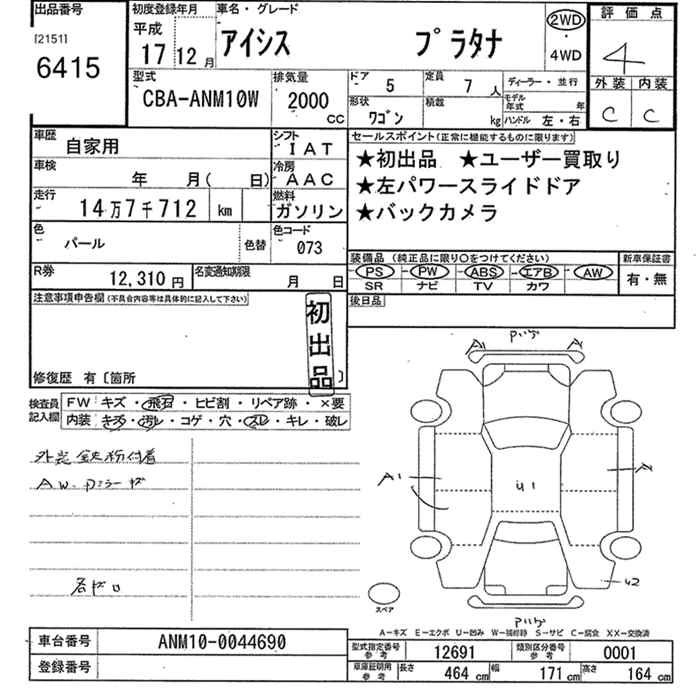 出品番号
[2151]
6415
初度登録年月
平成
17 12 月
車名・グレード
アイシス プラタナ
2WD
・
4WD
評価点
4
外装 内装
C C
型式
CBA-ANM10W
排気量
2000
CC
ドア 5
定員 7 人
ディーラー・並行
形状 ワゴン
積載 kg
モデル年式 年
ハンドル 左・右
車歴
自家用
シフト
IAT
車検
年 月( 日)
冷房
AAC
走行
14万7千712 km
燃料
ガソリン
色
パール
色替
色コード
073
R券
12,310 円
名変通知期限
月 日
セールスポイント(正常に機能するものに限ります)
★初出品 ★ユーザー買取り
★左パワースライドドア
★バックカメラ
装備品(純正品に限り〇をつけてください)
PS PW ABS エアB AW
SR ナビ TV カワ
新車保証書
有・無
後日品
注意事項申告欄(不具合内容等は具体的に記入して下さい)
初出品
修復歴 有〔箇所 〕
検査員記入欄
FW キズ・飛石・ヒビ割・リペア跡・×要
内装 きズ・汚レ・コゲ・穴・スレ・キレ・破レ
AW.
A A
A1 U1 A
U2
スペア
A-キズ E-エクボ U-凹み W-補修跡 S-サビ C-腐食 XX-交換済
車台番号
ANM10-0044690
登録番号
型式指定番号参考 12691
類別区分番号参考 0001
車庫証明用参考 長さ 464 cm 幅 171 cm 高さ 164 cm